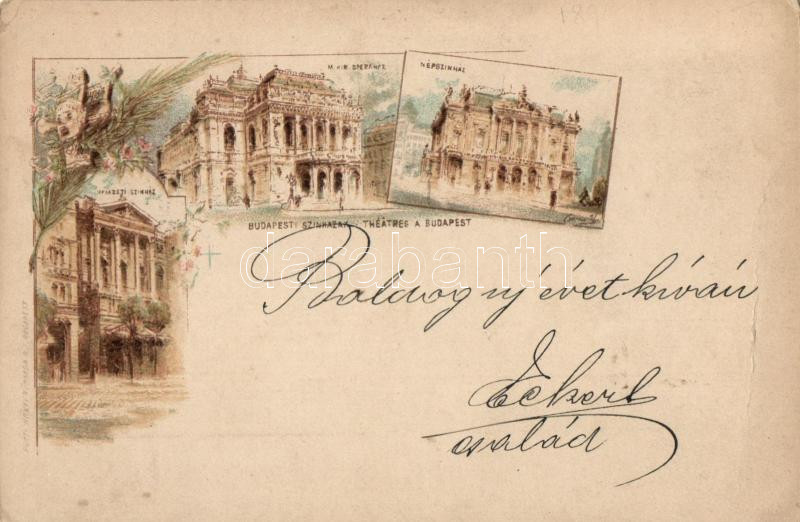 M. KIR. OPERAHÁZ
NÉPSZINHÁZ
NEMZETI SZINHÁZ
BUDAPESTI SZINHÁZAK. THÉÂTRES A BUDAPEST
darabanth
Boldog uj évet kíván
Eckert
család